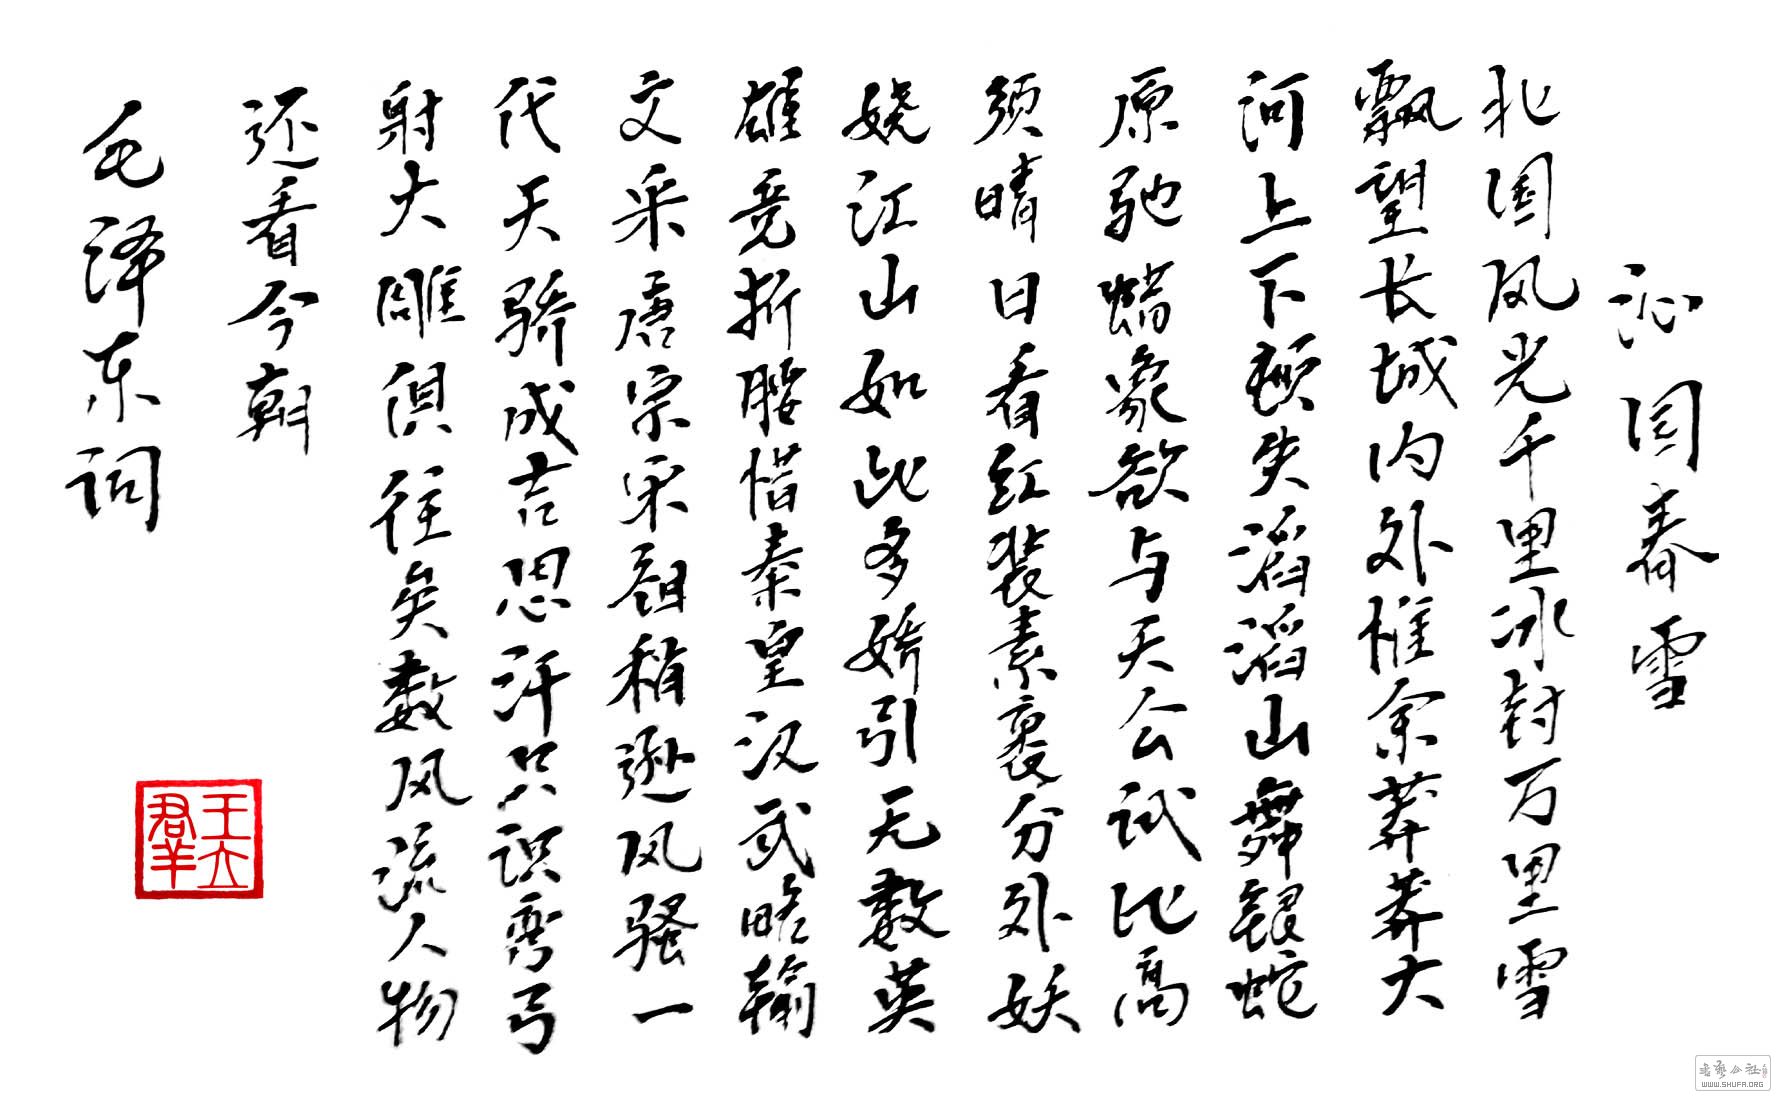 沁园春雪
北国风光千里冰封万里雪
飘望长城内外惟余莽莽大
河上下顿失滔滔山舞银蛇
原驰蜡象欲与天公试比高
须晴日看红装素裹分外妖
娆江山如此多娇引无数英
雄竞折腰惜秦皇汉武略输
文采唐宗宋祖稍逊风骚一
代天骄成吉思汗只识弯弓
射大雕俱往矣数风流人物
还看今朝
毛泽东词
王立群
书艺公社
WWW.SHUFA.ORG